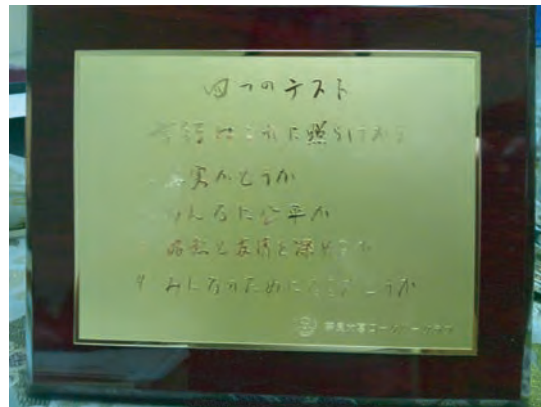 四つのテスト
はこれに照らしてから
真実かどうか
みんなに公平か
好意と友情を深めるか
4 みんなのためになるかどうか